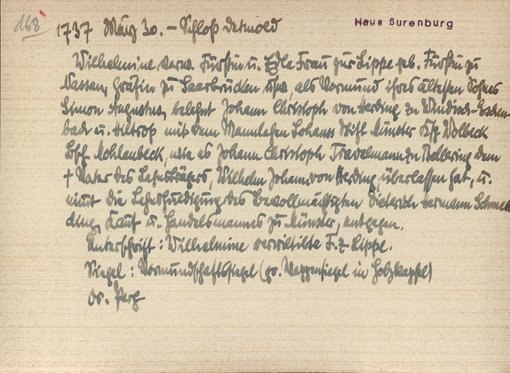 168
1737 März 30. – Schloß Detmold
Haus Surenburg
Wilhelmine verw. Fürstin u. Edle Frau zur Lippe geb. Fürstin zu
Nassau, Gräfin zu Saarbrücken usw. als Vormund ihres ältesten Sohnes
Simon Augustus, belehnt Johann Christoph von Herding zu
bach u. Hiltrop mit dem Mannlehen Johans Münster Ksp. Wolbeck
Bsch. wie es Johann Christoph Travelmann zu dem
† Vater des Lehnsträgers, Wilhelm Johann von Herding, überlassen hat, u.
nimt die Lehnshuldigung des Bevollmächtigten Dieterich Hermann
ding, Kauf u. Handelsmannes zu Münster, entgegen.
Unterschrift: Wilhelmine F. z. Lippe.
Siegel: Vormundschaftssiegel (gr. Wappensiegel in Holzkapsel)
Or. Perg